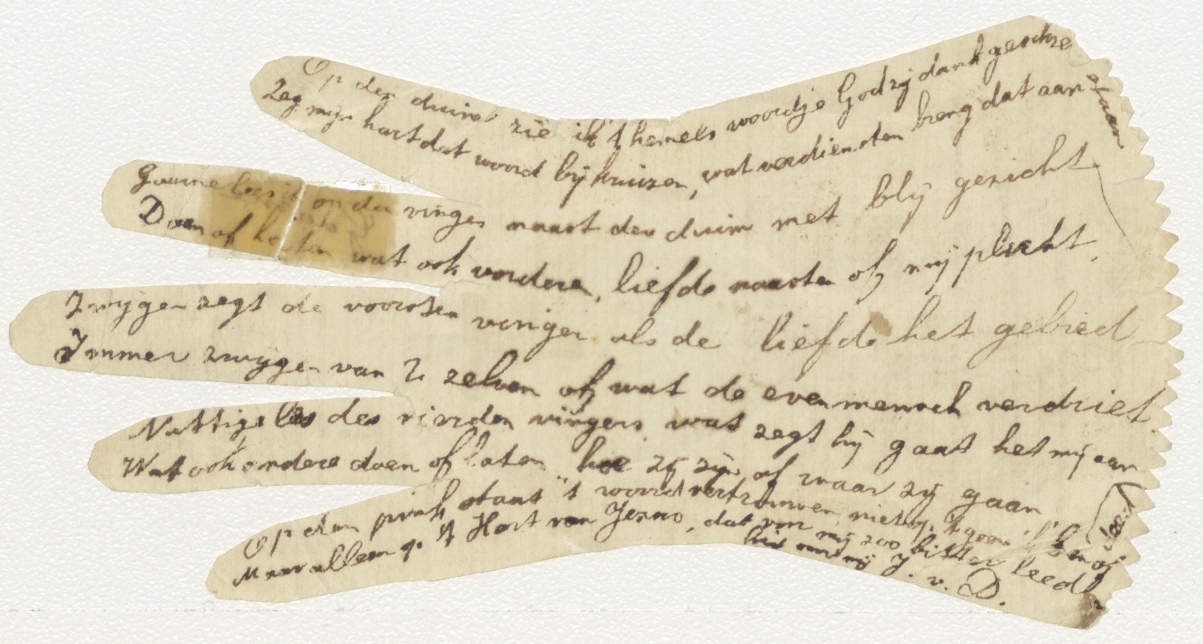 Op den duim zie ik 't hemels woordje God zij dank geschreven staan
Zeg mijn hart dat woord bij kruizen, wat verdiensten breng dat aan
Gaarne lees ik op den vinger naast den duim met blij gezicht
Doen of laten wat ook vordere, liefde naasten of mij plicht.
Zwijgen zegt de voorsten vinger als de liefde het gebied
Immer zwijgen van U zelven of wat de evenmensch verdriet.
Nuttige les des vierden vingers wat zegt hij gaat het mij aan
Wat ook andere doen of laten hoe zij zijn of waar zij gaan
Op den pink staat 't woord vertrouwen niet op 't geen ik ben of
Maar alleen op 't Hart van Jezus, dat voor mij zoo bitter leed
bid voor mij J. v. D.